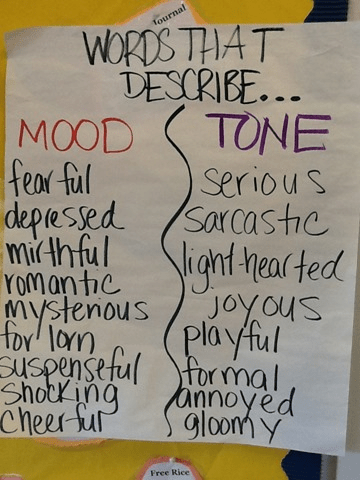 Journal
WORDS THAT
DESCRIBE...
MOOD
fearful
depressed
mirthful
romantic
mysterious
forlorn
suspenseful
shocking
cheerful
TONE
serious
sarcastic
light-hearted
joyous
playful
formal
annoyed
gloomy
Free Rice